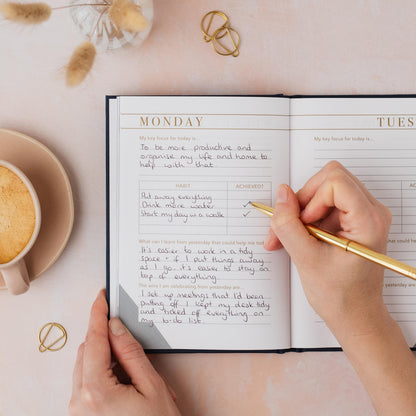 MONDAY
My key focus for today is...
To be more productive and
organise my life and home to
help with that.
HABIT ACHIEVED
Put away everything ✓
Drink more water ✓
Start my day in a walk ✓
What can I learn from yesterday that could help me today
It's easier to work in a tidy
space + if I put things away
as I go, it's easier to stay on
top of everything.
The wins I am celebrating from yesterday are...
I set up meetings that I'd been
putting off, I kept my desk tidy
and ticked off everything on
my to-do list
TUES
My key focus for today is...